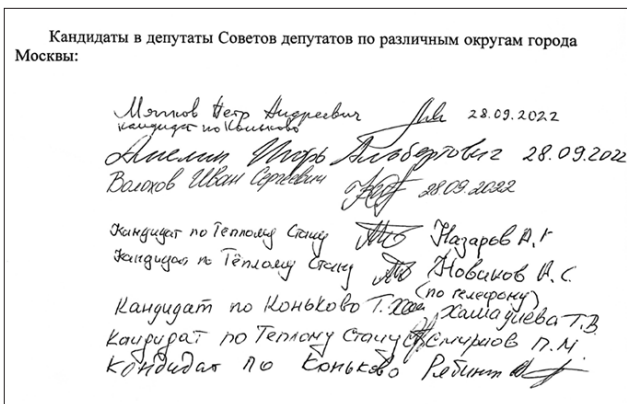 Кандидаты в депутаты Советов депутатов по различным округам города
Москвы:
Мягков Петр Андреевич 28.09.2022
кандидат по
Амелин Игорь Альбертович 28.09.2022
Волохов Иван Сергеевич 28.09.2022
Кандидат по Теплому Стану Назаров А.
Кандидат по Тёплому Стану Новиков А.С.
(по телефону)
Кандидат по Коньково Т. Хамадиева Т.В.
Кандидат по Теплому Стану Смирнов П.М.
Кондидат по Коньково